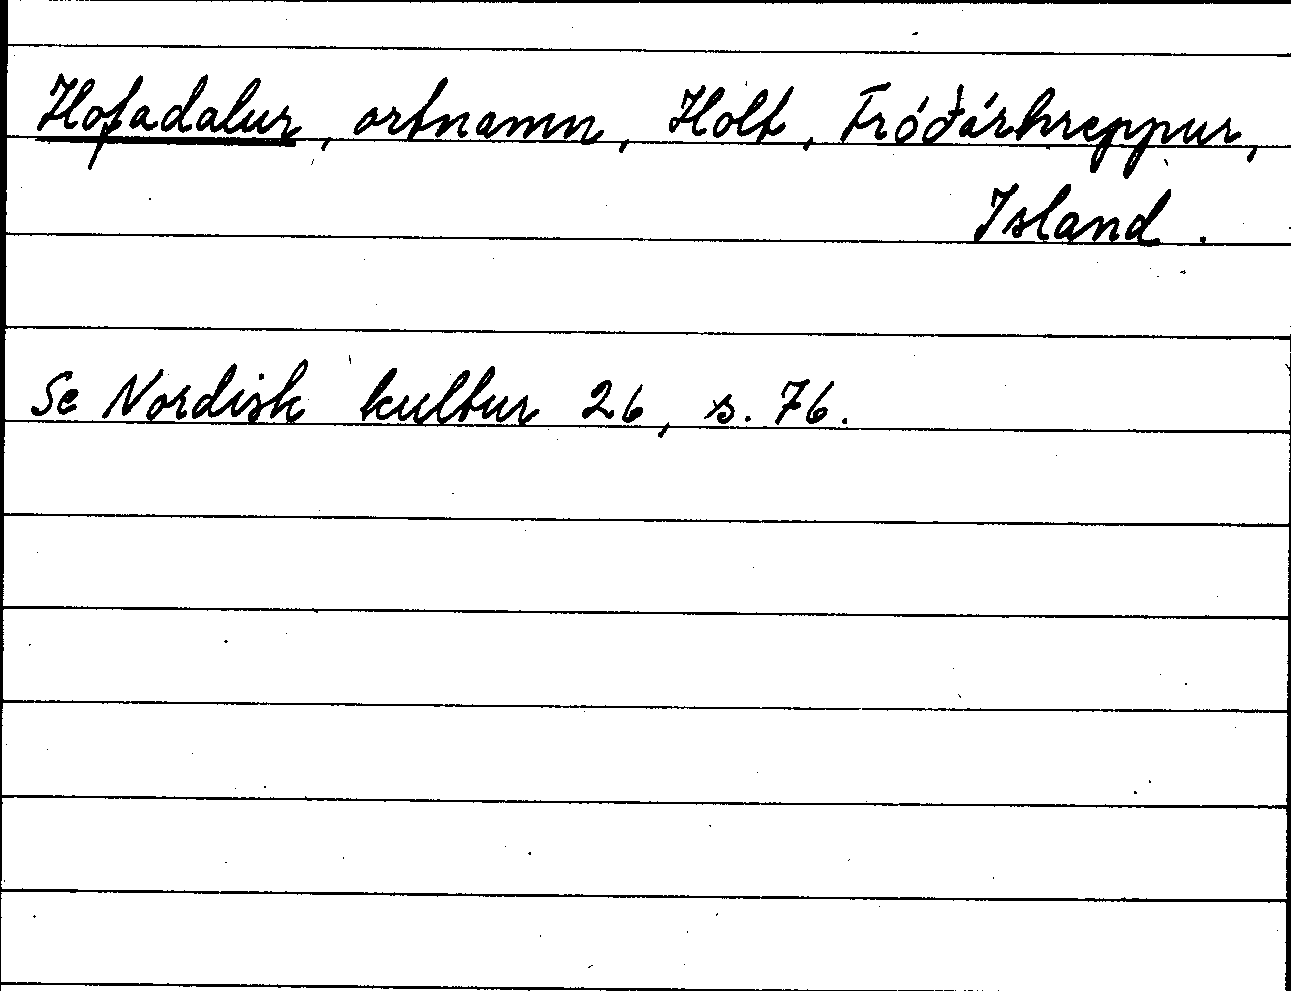 Hofadalur, ortnamn, Holt, Fróðárhreppur,
Island.
Se Nordisk kultur 26, s. 76.